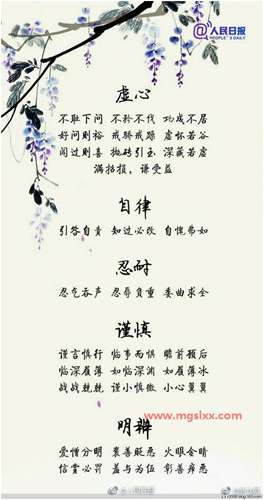 @人民日报
PEOPLE'S DAILY
虚心
不耻下问 不矜不伐 功成不居
好问则裕 戒骄戒躁 虚怀若谷
闻过则喜 抛砖引玉 深藏若虚
满招损，谦受益
自律
引咎自责 知过必改 自愧弗如
忍耐
忍气吞声 忍辱负重 委曲求全
谨慎
谨言慎行 临事而惧 瞻前顾后
临深履薄 如临深渊 如履薄冰
战战兢兢 谨小慎微 小心翼翼
www.mgslxx.com
明辨
爱憎分明 褒善贬恶 火眼金睛
信赏必罚 羞与为伍 彰善瘅恶